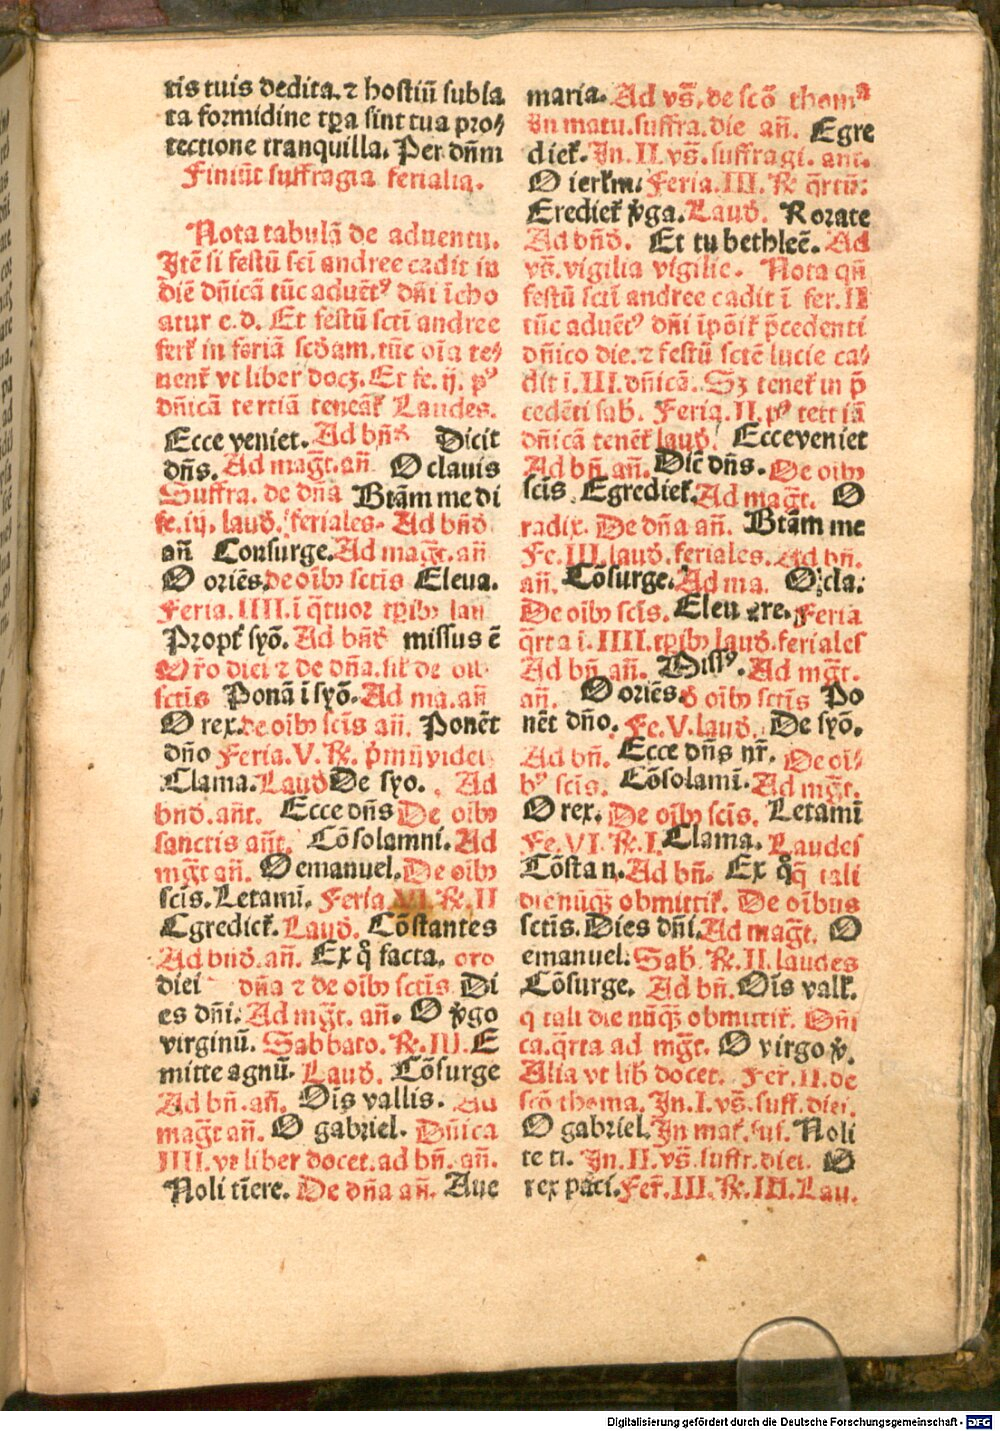 tis tuis dedita. ⁊ hostiū subla
ta formidine tꝑa sint tua pro⸗
tectione tranquilla. Per dñm
Finiūt suffragia ferialia.
Nota tabulā de aduentu.
Itē si festū sci andree cadit in
diē dñicā tūc aduētꝰ dñi īcho
atur e.d. Et festū scti andree
ferͭ in feriā scdam. tūc oīa te⸗
nentͬ vt liber docꝫ. Et fe. ij. pꝰ
dñicā tertiā teneātͬ Laudes.
Ecce veniet. Ad bñd Dicit
dñs. Ad mag̃t. añ O clauis
Suffra. de dña Btām me di
fe. iij. laud. feriales. Ad bñd
añ Consurge. Ad mag̃t. añ
O oriēs. de oībꝫ sctis Eleua.
Feria. IIII. i q̄tuor tꝑibꝫ lau
Proptͬ syō. Ad bñd missus ē
Oro diei ⁊ de dña. sil de oīb
sctis Ponā ī syō. Ad ma. añ
O rex. de oībꝫ scis añ. Ponēt
dño Feria. V. ℟. pmū videi
Clama. Laud De syo. Ad
bnd. añt. Ecce dñs De oībꝫ
sanctis añt. Cōsolamni. Ad
mg̃t añ. O emanuel. De oībꝫ
scis. Letami. Feria VI. ℟. II
Egrediet͛. Laud. Cōstantes
Ad bnd. añ. Ex q̄ facta. oro
diei dña ⁊ de oībꝫ sctis Di
es dñi. Ad mg̃t. añ. O v̄go
virginū. Sabbato. ℟. III. E
mitte agnū. Laud. Cōsurge
Ad bñ. añ. Oīs vallis. Ad
mag̃t añ. O gabriel. Dñica
IIII. vt liber docet. ad bñ. añ.
Noli tīere. De dña añ. Aue
maria. Ad vs̄. de scō thomᵃ
In matu. suffra. die añ. Egre
diet͛. In. II. vs̄. suffragi. ant.
O ierl̄m. Feria. III. ℟ q̄rtū.
Erediet͛ v̄ga. Laud. Rorate
Ad bñd. Et tu bethleē. Ad
vs̄. vigilia vigilie. Nota qñ
festū scti andree cadit ī fer. II
tūc aduētꝰ dñi īpōit͛ p̄cedenti
dñico die. ⁊ festū sctē lucie ca⸗
dit i. III. dñicā. Sꝫ tenet͛ in p̄
cedēti sab. Feria. II. pꝰ tertiā
dñicā tenēt͛ laud. Ecce veniet
Ad bñ. añ. Dic̄ dñs. De oībꝫ
scis. Egrediet͛. Ad mag̃t. O
radix. De dña añ. Btām me
Fe. III. laud. feriales. Ad bñ.
añ. Cōsurge. Ad ma. O cla.
De oībꝫ scis. Eleuare. Feria
q̄rta i. IIII. tꝑibꝫ laud. feriales
Ad bñ. añ. Missꝰ. Ad mg̃t.
añ. O oriēs. d oībꝫ sctis Po
nēt dño. Fe. V. laud. De syō.
Ad bñ. Ecce dñs nr̄. De oī⸗
bꝰ scis. Cōsolamī. Ad mg̃t.
O rex. De oībꝫ scis. Letamī
Fe. VI. ℟. I. Clama. Laudes
Cōstan. Ad bñ. Ex q̊q̄ tali
die nūqꝫ obmittit͛. De oībus
sctis. Dies dñi. Ad mag̃t. O
emanuel. Sab. ℟. II. laudes
Cōsurge. Ad bñ. Oīs vall͛.
q̄ tali die nūqꝫ obmittit͛. Dñi
ca. q̄rta ad mg̃t. O virgo v̄.
Alia vt lib docet. Fer. II. de
scō thoma. In. I. vs̄. suff. diei.
O gabriel. In mat͛. suf. Noli
te ti. In. II. vs̄. suffr. diei. O
rex paci. Fer͛. III. ℟. III. Lau.
Digitalisierung gefördert durch die Deutsche Forschungsgemeinschaft - DFG